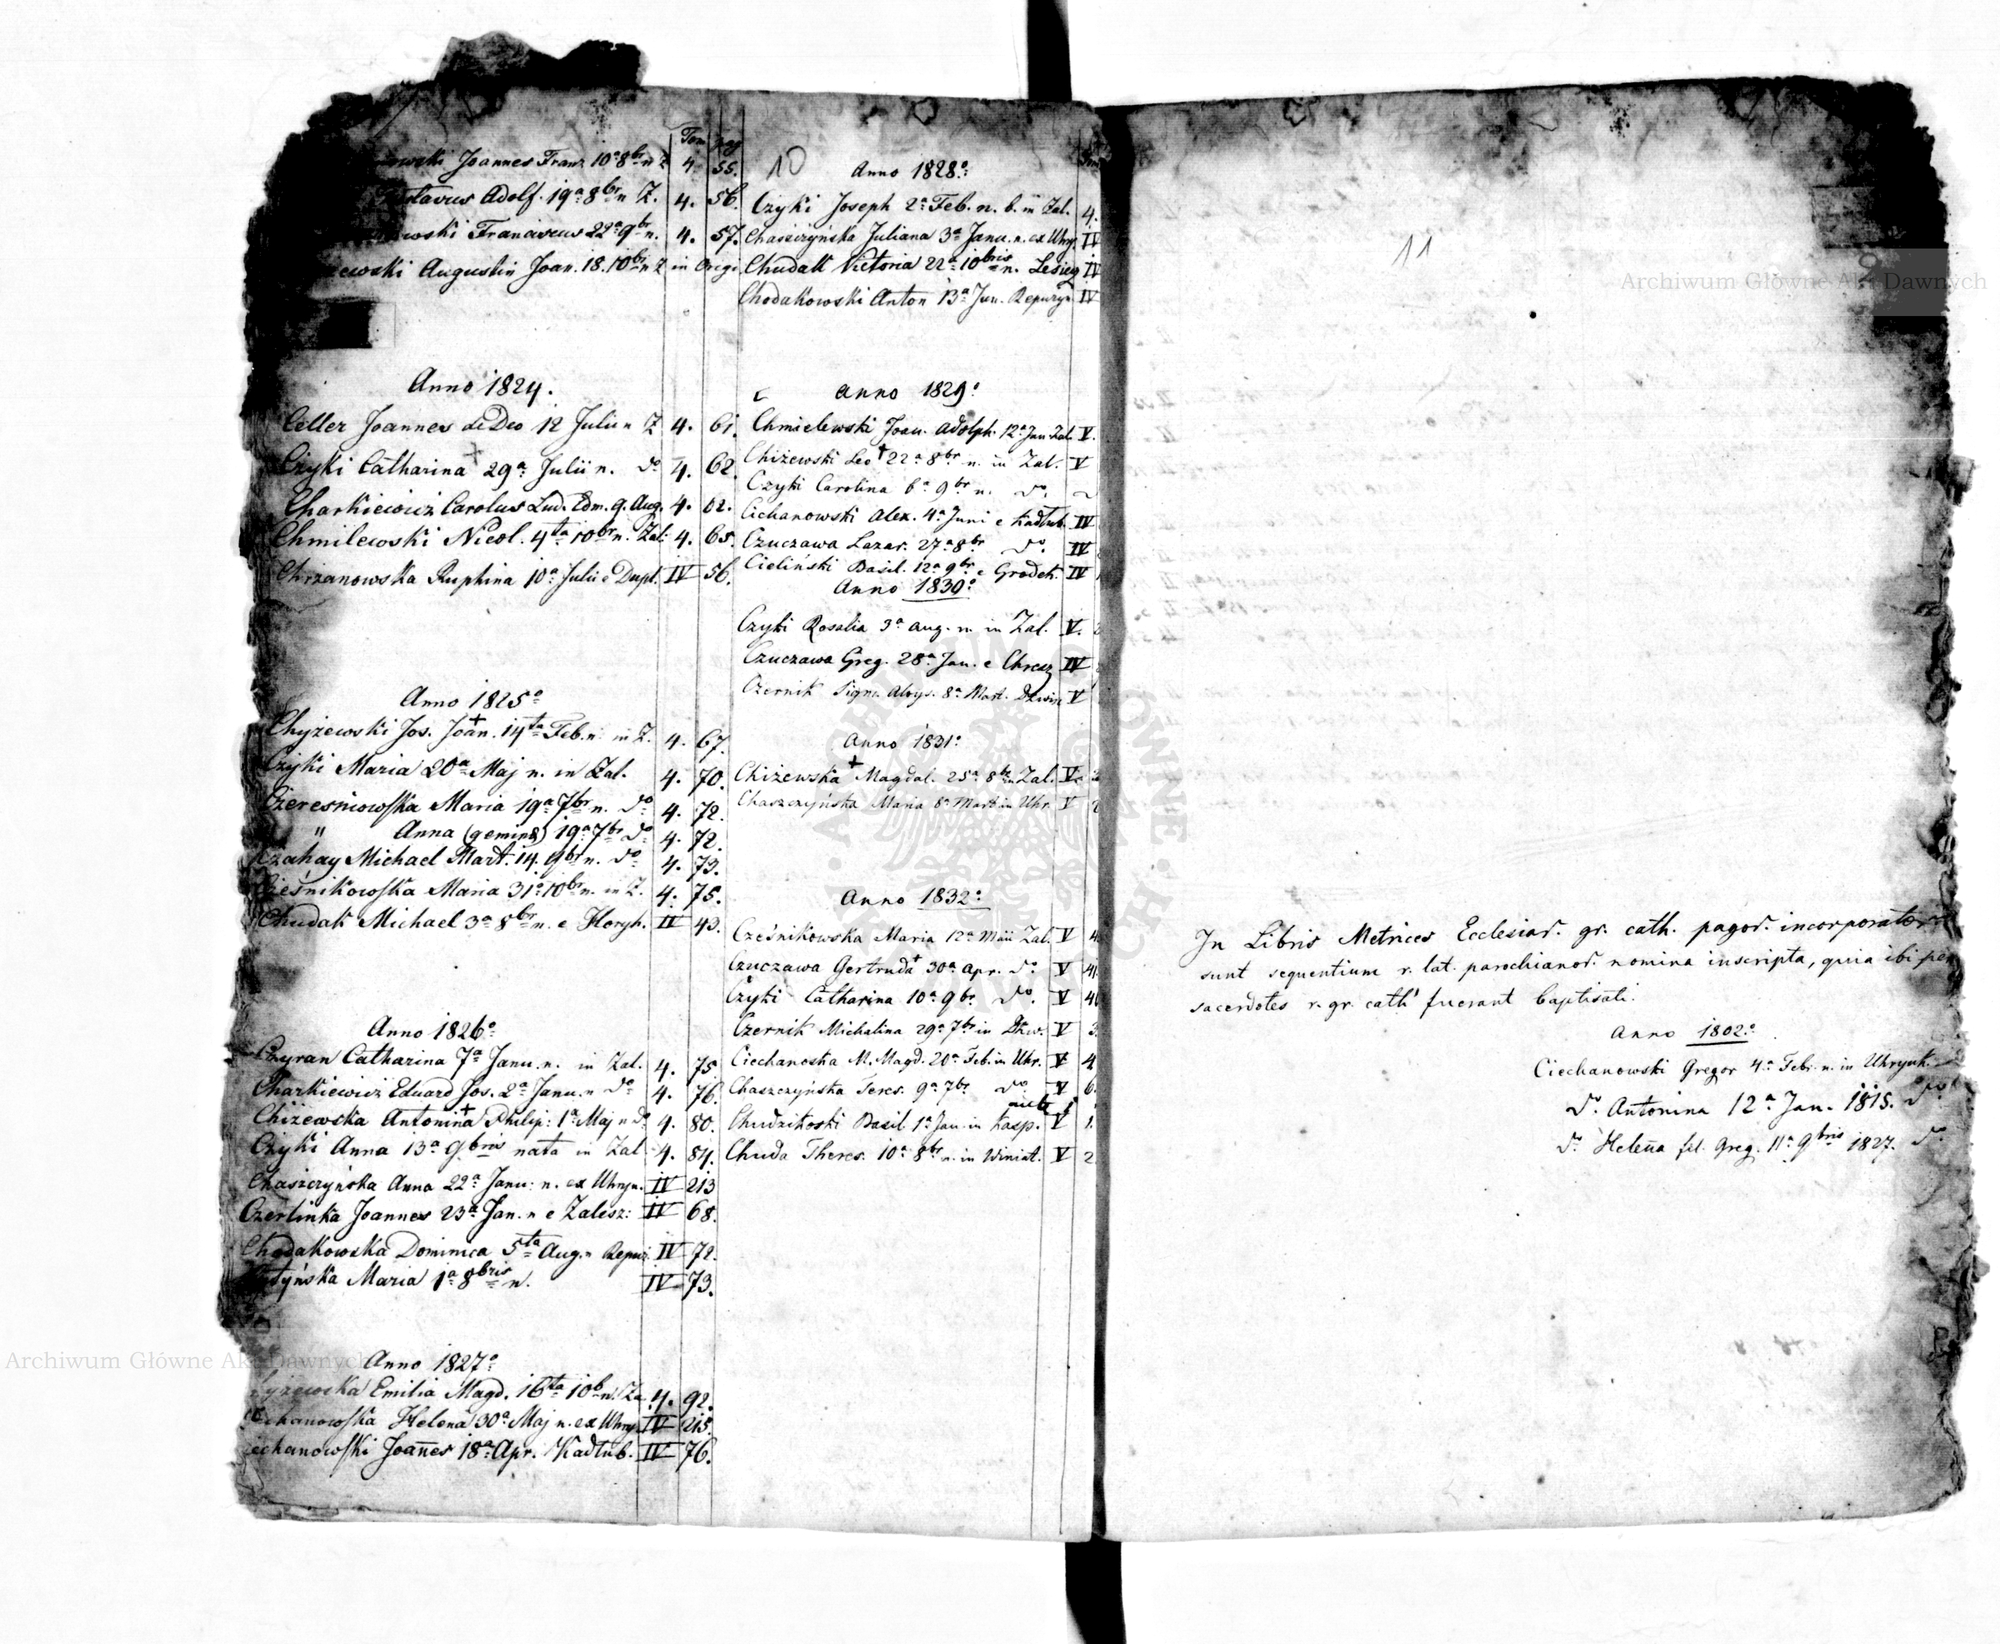 Tom pag
Joannes Franz 10a 8br n Z 4. 55.
Adolf. 19a 8br n Z. 4. 56.
Franciscus 22a 9br n. 4. 57.
Augustin Joan. 18. 10br n Z in Orig.
Anno 1824.
Celler Joannes de Deo 12 Julii n Z 4. 61.
Czyki Catharina 29a Julii n. do 4. 62.
Charkiewicz Carolus Lud. Edm. 9. Aug. 4. 62.
Chmilewski Nicol. 4ta 10br n. Zal. 4. 65.
Chrzanowska Ruphina 10a Julii e Dupl. IV 56.
Anno 1825o
Chyżewski Jos. Joan. + 14ta Feb. n. in Z. 4. 67.
Czyki Maria 20a Maj n. in Zal. 4. 70.
Czereśniowska Maria 19a 7br n. do 4. 72.
" Anna (gemina) 19a 7br do 4. 72.
Czahay Michael Mart. 14. 9br n. do 4. 73.
Cześnikowska Maria 31a 10br n. in Z. 4. 75.
Chudak Michael 3a 8br n. e Horyh. IV 43.
Anno 1826o
Czyran Catharina 7a Janu. n. in Zal. 4. 75
Charkiewicz Eduard Jos. 2a Janu. n do 4. 76.
Chiżewska Antonina + Philip: 1a Maj n do 4. 80.
Czyki Anna 13a 9bris nata in Zal 4. 84.
Chaszczyńska Anna 22a Janu: n. ex Uhryn. IV 213
Czerlinka Joannes 23a Jan. n e Zalesz: IV 68.
Chodakowska Dominica 5ta Aug. n Repuz. IV 72.
Maria 1a 8bris n. IV 73.
Anno 1827o
Emilia Magd. 16ta 10b n. Za 4. 92.
Ciechanowska Helena 30a Maj n. ex Uhry. IV 215.
Ciechanowski Joannes 18a Apr. Kadłub. IV 76.
10 Anno 1828o
Czyki Joseph 2a Feb. n. b. in Zal. 4.
Chaszczyńska Juliana 3a Janu. n. ex Uhry. IV
Chudak Victoria 22a 10bris n. IV
Chodakowski Anton 13a Jun. Repuzyn. IV
Anno 1829o
Chmielewski Joan. Adolph. 12a Jan. Zal. V.
Chiżewski Leo + 22a 8br n. in Zal. V
Czyki Carolina 6a 9br n. do.
Cichanowski Alex. 4a Juni e Kadłub. IV
Czuczawa Lazar. 27a 8br do. IV
Cieliński Basil. 12a 9br e Grodek. IV
Anno 1830o
Czyki Rosalia 3a Aug. n. in Zal. V.
Czuczawa Greg. 28a Jan. e Chrezz IV
Czernik Sigm. Aloys. 8a Mart. Dzwin. V
Anno 1831o
Chiżewska + Magdal. 25a 8br in Zal. V.
Chaszczyńska Maria 8a Mart. in Uhr. V
Anno 1832o
Cześnikowska Maria 12a Maii Zal. V
Czuczawa Gertruda + 30a Apr. do V
Czyki Catharina 10a 9br do. V
Czernik Michalina 29a 7br in Dzw. V
Ciechanoska M. Magd. 20a Feb. in Uhr. V
Chaszczyńska Teres. 9a 7br do. V 6.
Chudzikoski Basil 1a Jan. in Kasp. V
Chuda Theres. 10a 8br n. in Winiat. V 2
11
In Libris Metrices Ecclesiar. gr. cath. pagor. incorporator.
sunt sequentium r. lat. parochianor. nomina inscripta, quia ibi per
sacerdotes r. gr. cath. fuerant baptisati.
Anno 1802o
Ciechanowski Gregor 4a Febr. n. in Uhrynk.
do. Antonina 12a Jan. 1815. do
do. Helena fil. Greg. 11a 9bris 1827. do
Archiwum Główne Akt Dawnych
Archiwum Główne Akt Dawnych